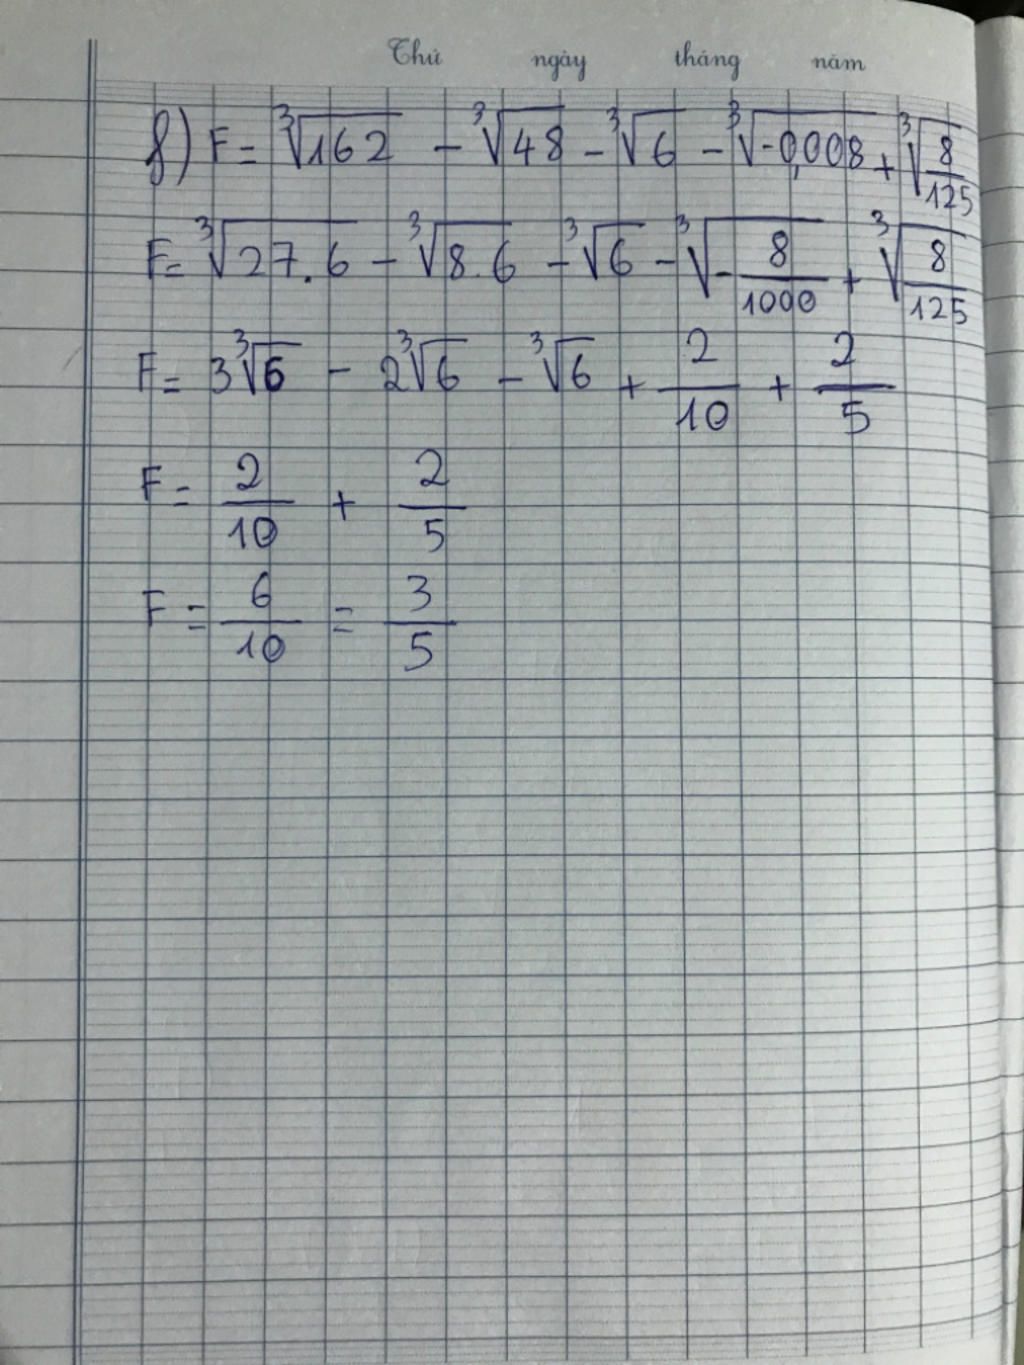 Thứ ngày tháng năm
f) F = ∛162 - ∛48 - ∛6 - ∛-0,008 + ∛(8/125)
F = ∛27.6 - ∛8.6 - ∛6 - ∛(-8/1000) + ∛(8/125)
F = 3∛6 - 2∛6 - ∛6 + 2/10 + 2/5
F = 2/10 + 2/5
F = 6/10 = 3/5